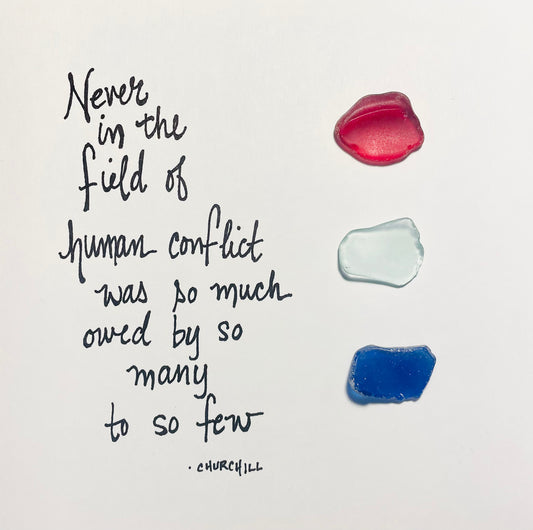 Never
in the
field of
human conflict
was so much
owed by so
many
to so few
· CHURCHILL